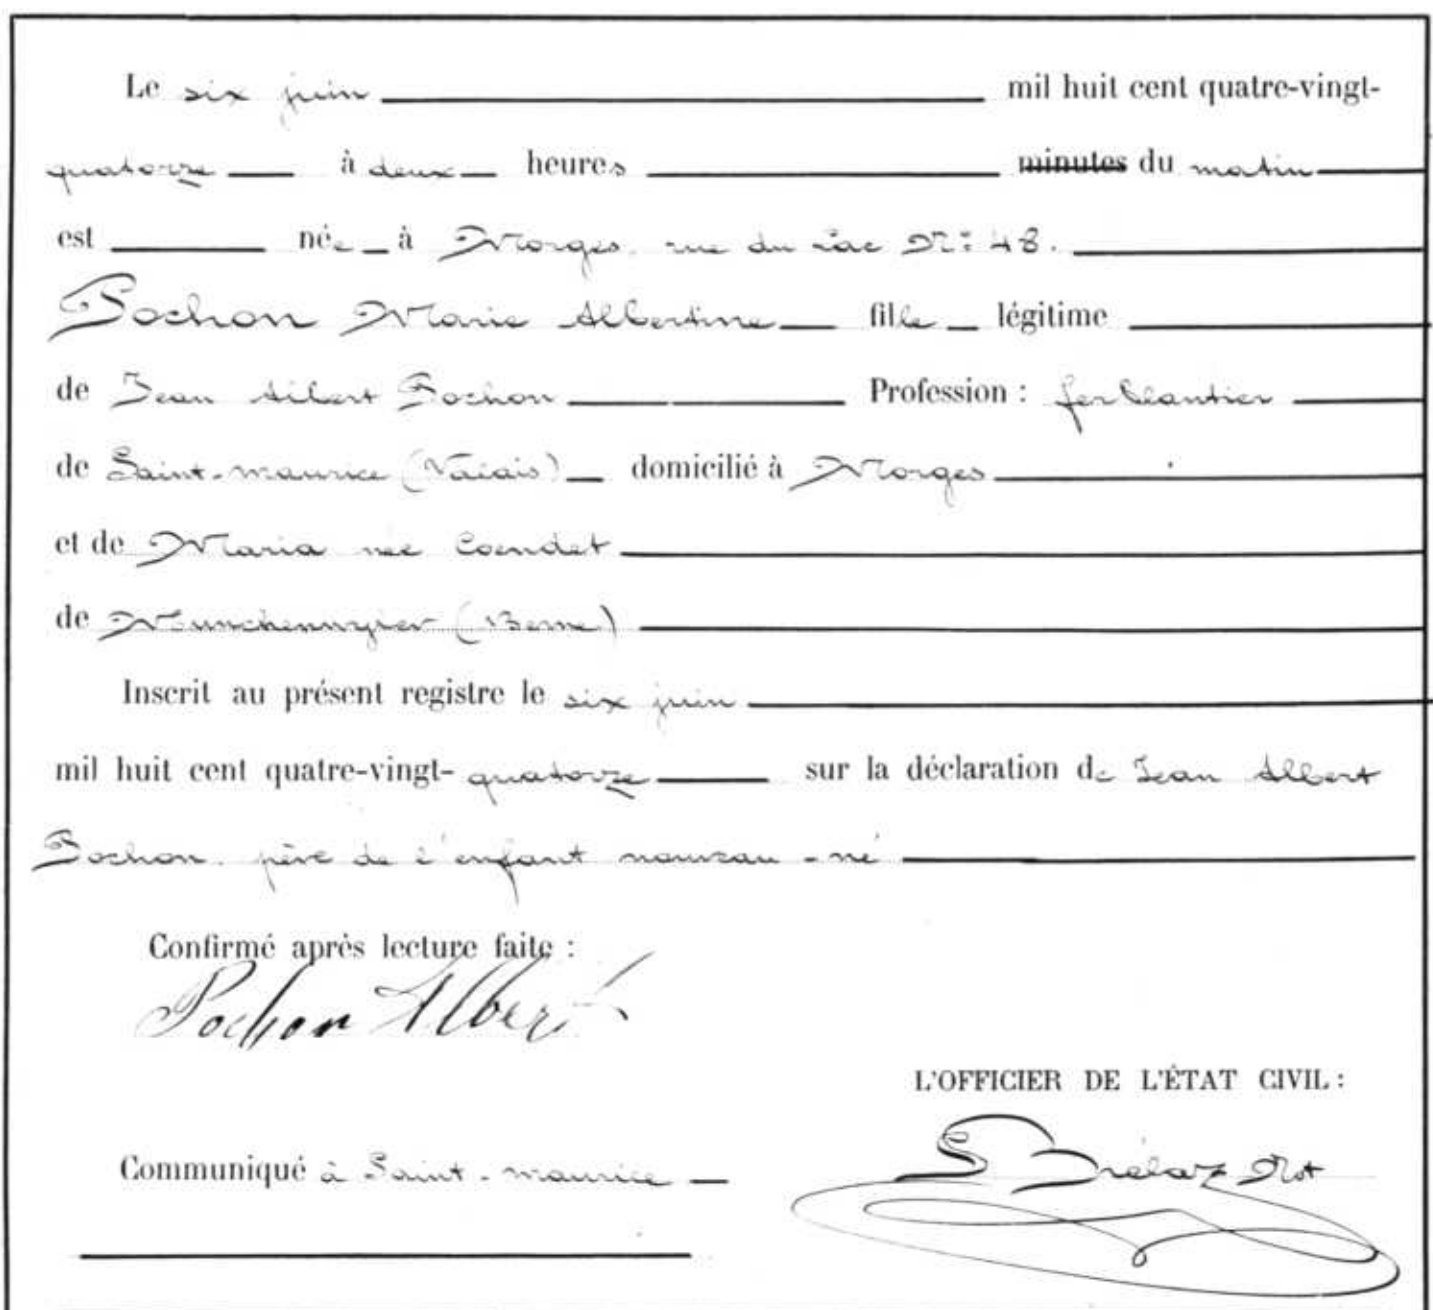 Le six juin mil huit cent quatre-vingt-
quatorze à deux heures minutes du matin
est née à Morges, rue du Lac No: 48.
Pochon Marie Albertine fille légitime
de Jean Albert Pochon Profession : ferblantier
de Saint-Maurice (Valais) domicilié à Morges
et de Maria née Coendet
de Munchenwyler (Berne)
Inscrit au présent registre le six juin
mil huit cent quatre-vingt-quatorze sur la déclaration de Jean Albert
Pochon, père de l'enfant nouveau-né
Confirmé après lecture faite :
Pochon Albert
L'OFFICIER DE L'ÉTAT CIVIL :
Communiqué à Saint-Maurice
Brélaz Not